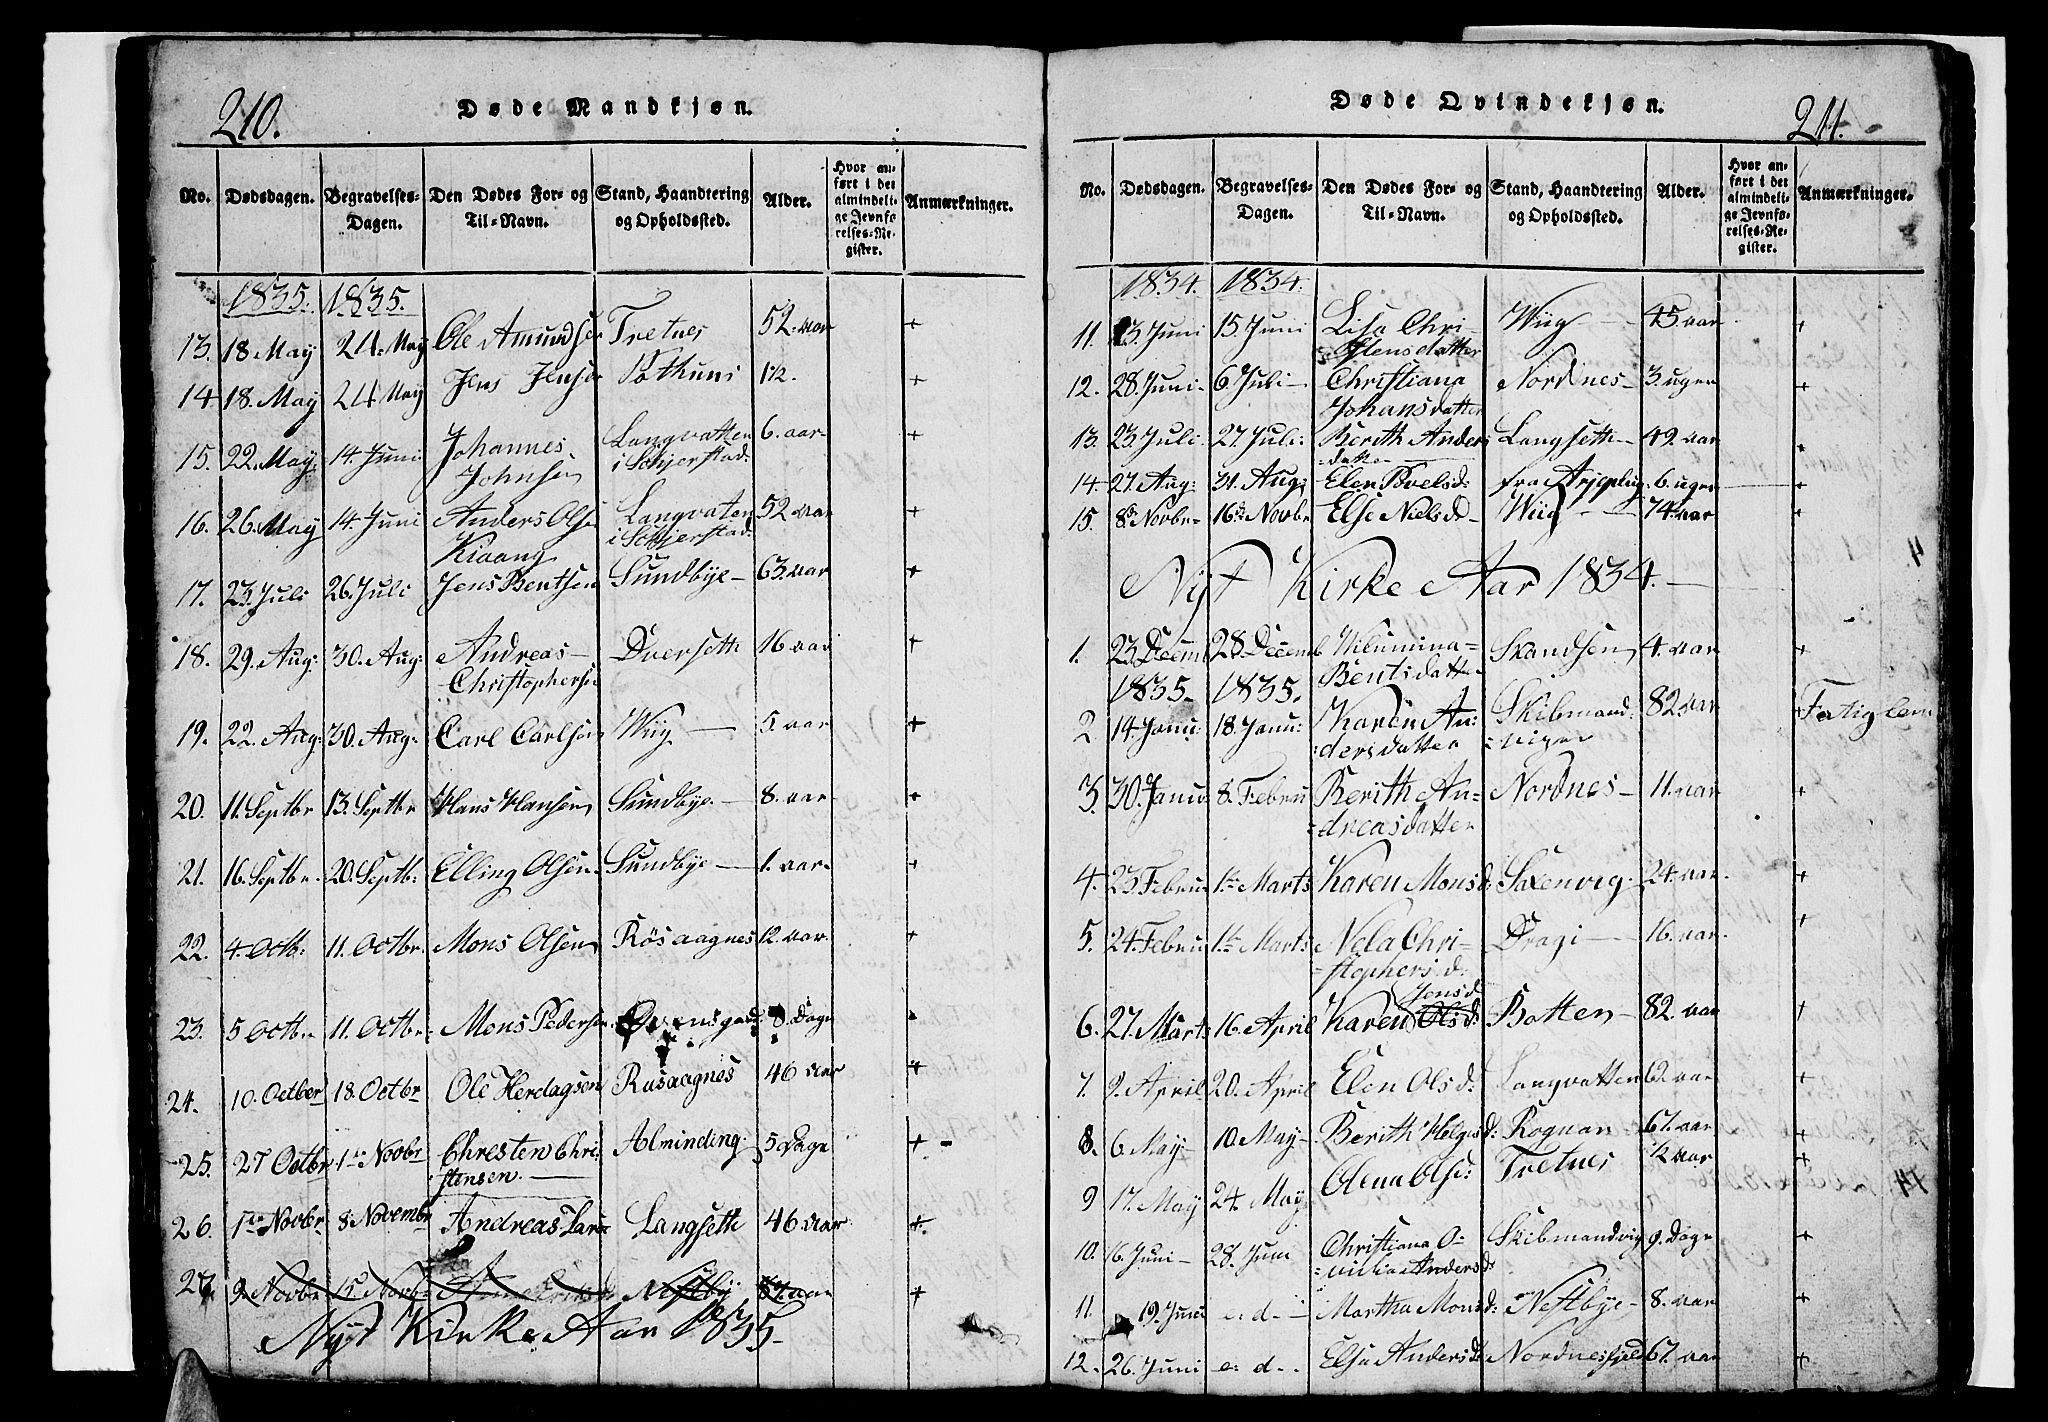 210.
Døde Mandkjøn.
No. Dødsdagen. Begravelses-Dagen. Den Dødes For- og Til-Navn. Stand, Haandtering og Opholdssted. Alder. Hvor anført i det almindelige Jevnførelses-Register. Anmærkninger.
1835. 1835.
13. 18 May 24. May Ole Amundsen Tretnes 52. aar +
14 18. May 24 May Jens Jensen 1½. +
15. 22. May. 14. Juni Johannes Johnsen Langvatten i Schjerstad. 6. aar +
16. 26. May 14. Juni Anders Olsen Langvaten i Schjerstad. 52 aar +
17. 23. Juli 26. Juli Jens Bentsen Sundbye 63. aar +
18. 29. Aug: 30. Aug: Andreas Christophersen Dversett 16 aar +
19. 22. Aug: 30. Aug: Carl Carlsen Wiig 5. aar +
20. 11. Septbr 13. Septbr Hans Hansen Sundbye 8. aar +
21. 16. Septbr. 20. Septb: Elling Olsen Sundbye 1. aar +
22. 4. Octb: 11. Octbr. Mons Olsen Rösaagnes 12. aar. +
23. 5 Octbr 11. Octbr: Mons Pedersen 8. Dage
24. 10. Octber 18. Octbr Ole Herdagsen Rusaagnes 46 aar +
25. 27 Octbr 1ste Novbr Chresten Christensen. Alminding. 5 Dage +
26. 1ste Novbr 8. Novembr Andreas Langseth 46 aar +
27. 9. Novbr 15. Novbr Nestby +
Nyt Kirke Aar 1835
211.
Døde Qvindekjøn.
No. Dødsdagen. Begravelses-Dagen. Den Dødes For- og Til-Navn. Stand, Haandtering og Opholdssted. Alder. Hvor anført i det almindelige Jevnførelses-Register. Anmærkninger.
1834. 1834.
11. 3 Juni 15. Juni Lisa Christensdatter Wiig 45 aar +
12. 28. Juni 6. Juli Christiana Johansdatter Nordnes 3. uger +
13. 23. Juli 27. Juli: Berith Andersdatter Langseth 49. aar
14. 27. Aug: 31. Aug: Elen Povelsd: fra Arjeplug 6. uger +
15. 8de Novbr 16de Novbr Else Nielsd Wiig 74. aar +
Nyt Kirke Aar 1834.
1. 23. Decemb 28. Decemb Wilumina Bentsdatter Skandsen 4. aar +
1835. 1835.
2 14. Janu: 18. Janu: Karen Andersdatter Skibmandvigen 82 aar Fatig lem
3. 30. Janu 8. Febru Berith Andreasdatter Nordnes 11. aar +
4. 23. Febru 1ste Marts Karen Monsd: Saxenvig 24. aar +
5. 24. Febru 1ste Marts Nela Christophersd. Dragi 16. aar +
6. 27. Marts 16. April Karen Jensd Olsd: Botten 82. aar +
7. 9. April 20. April Elen Olsd: Langvatten 62. aar +
8. 6. May 10. May Berith Helgesd: Rognan 67. aar +
9 17. May 24. May Olena Olsd: Tretnes ½ aar +
10. 16. Juni 28. Juni Christiana Andersd: Skibmandvig 9. Dage +
11. 19. Juni e: d Martha Monsd: Nestbye 8. aar +
12. 26. Juni e: d Elsa Andersd: Nordnesfjeld 67. aar +